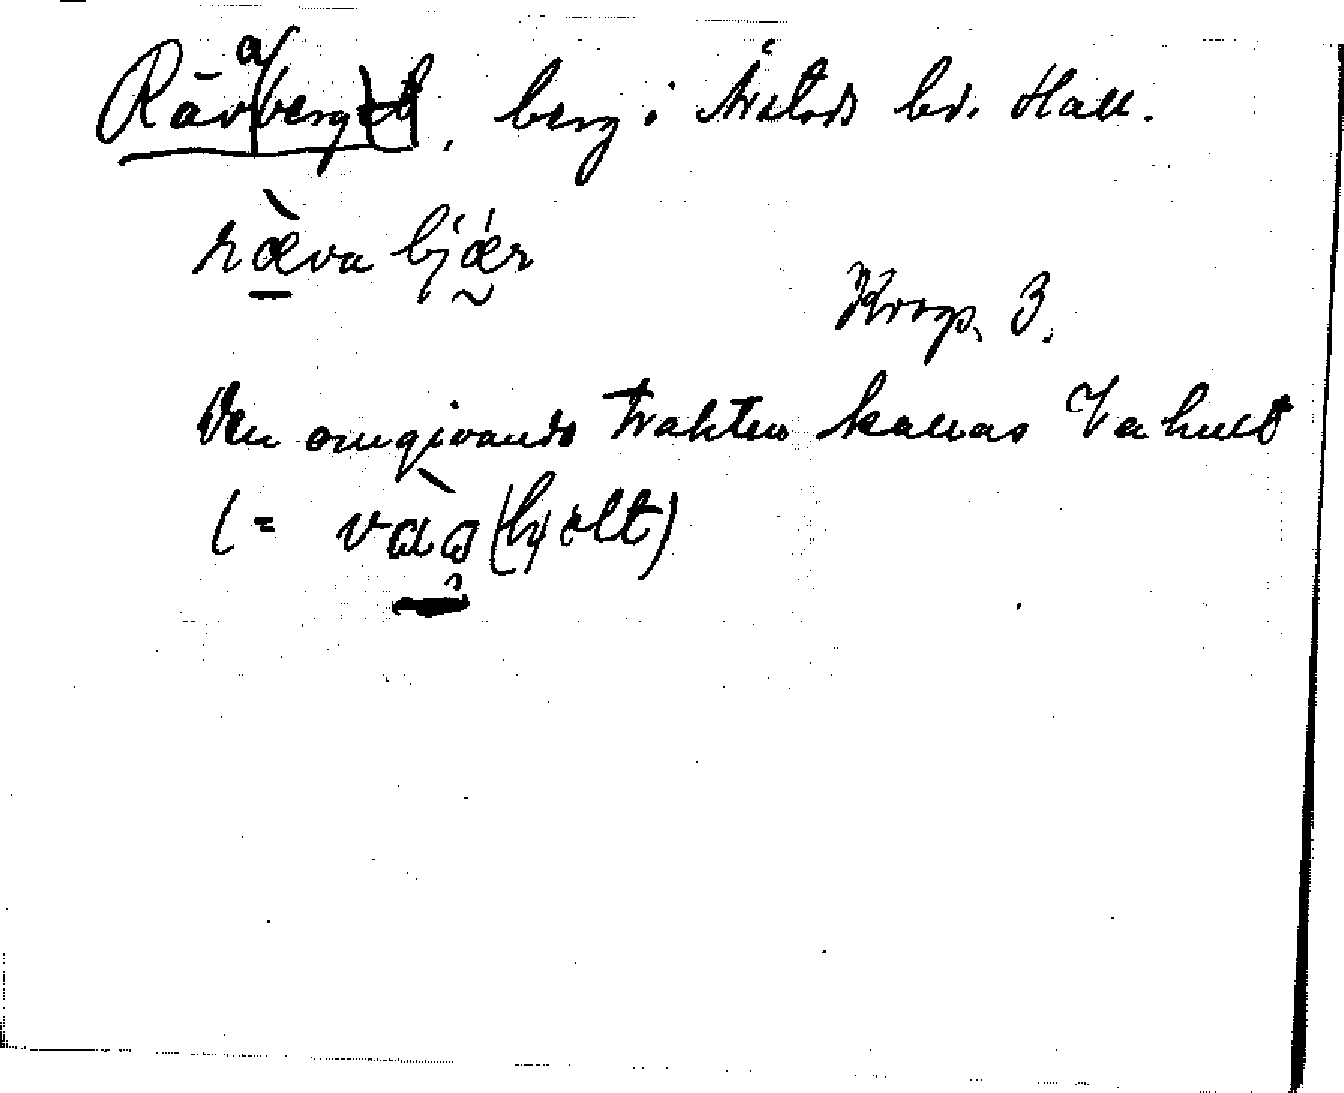 Räv a berget, berg i Årstads hd. Hall.
ræ̀va bjǽr
Krogs. 3.
Den omgivande trakten kallas Vahult
(= vàa (hy olt)